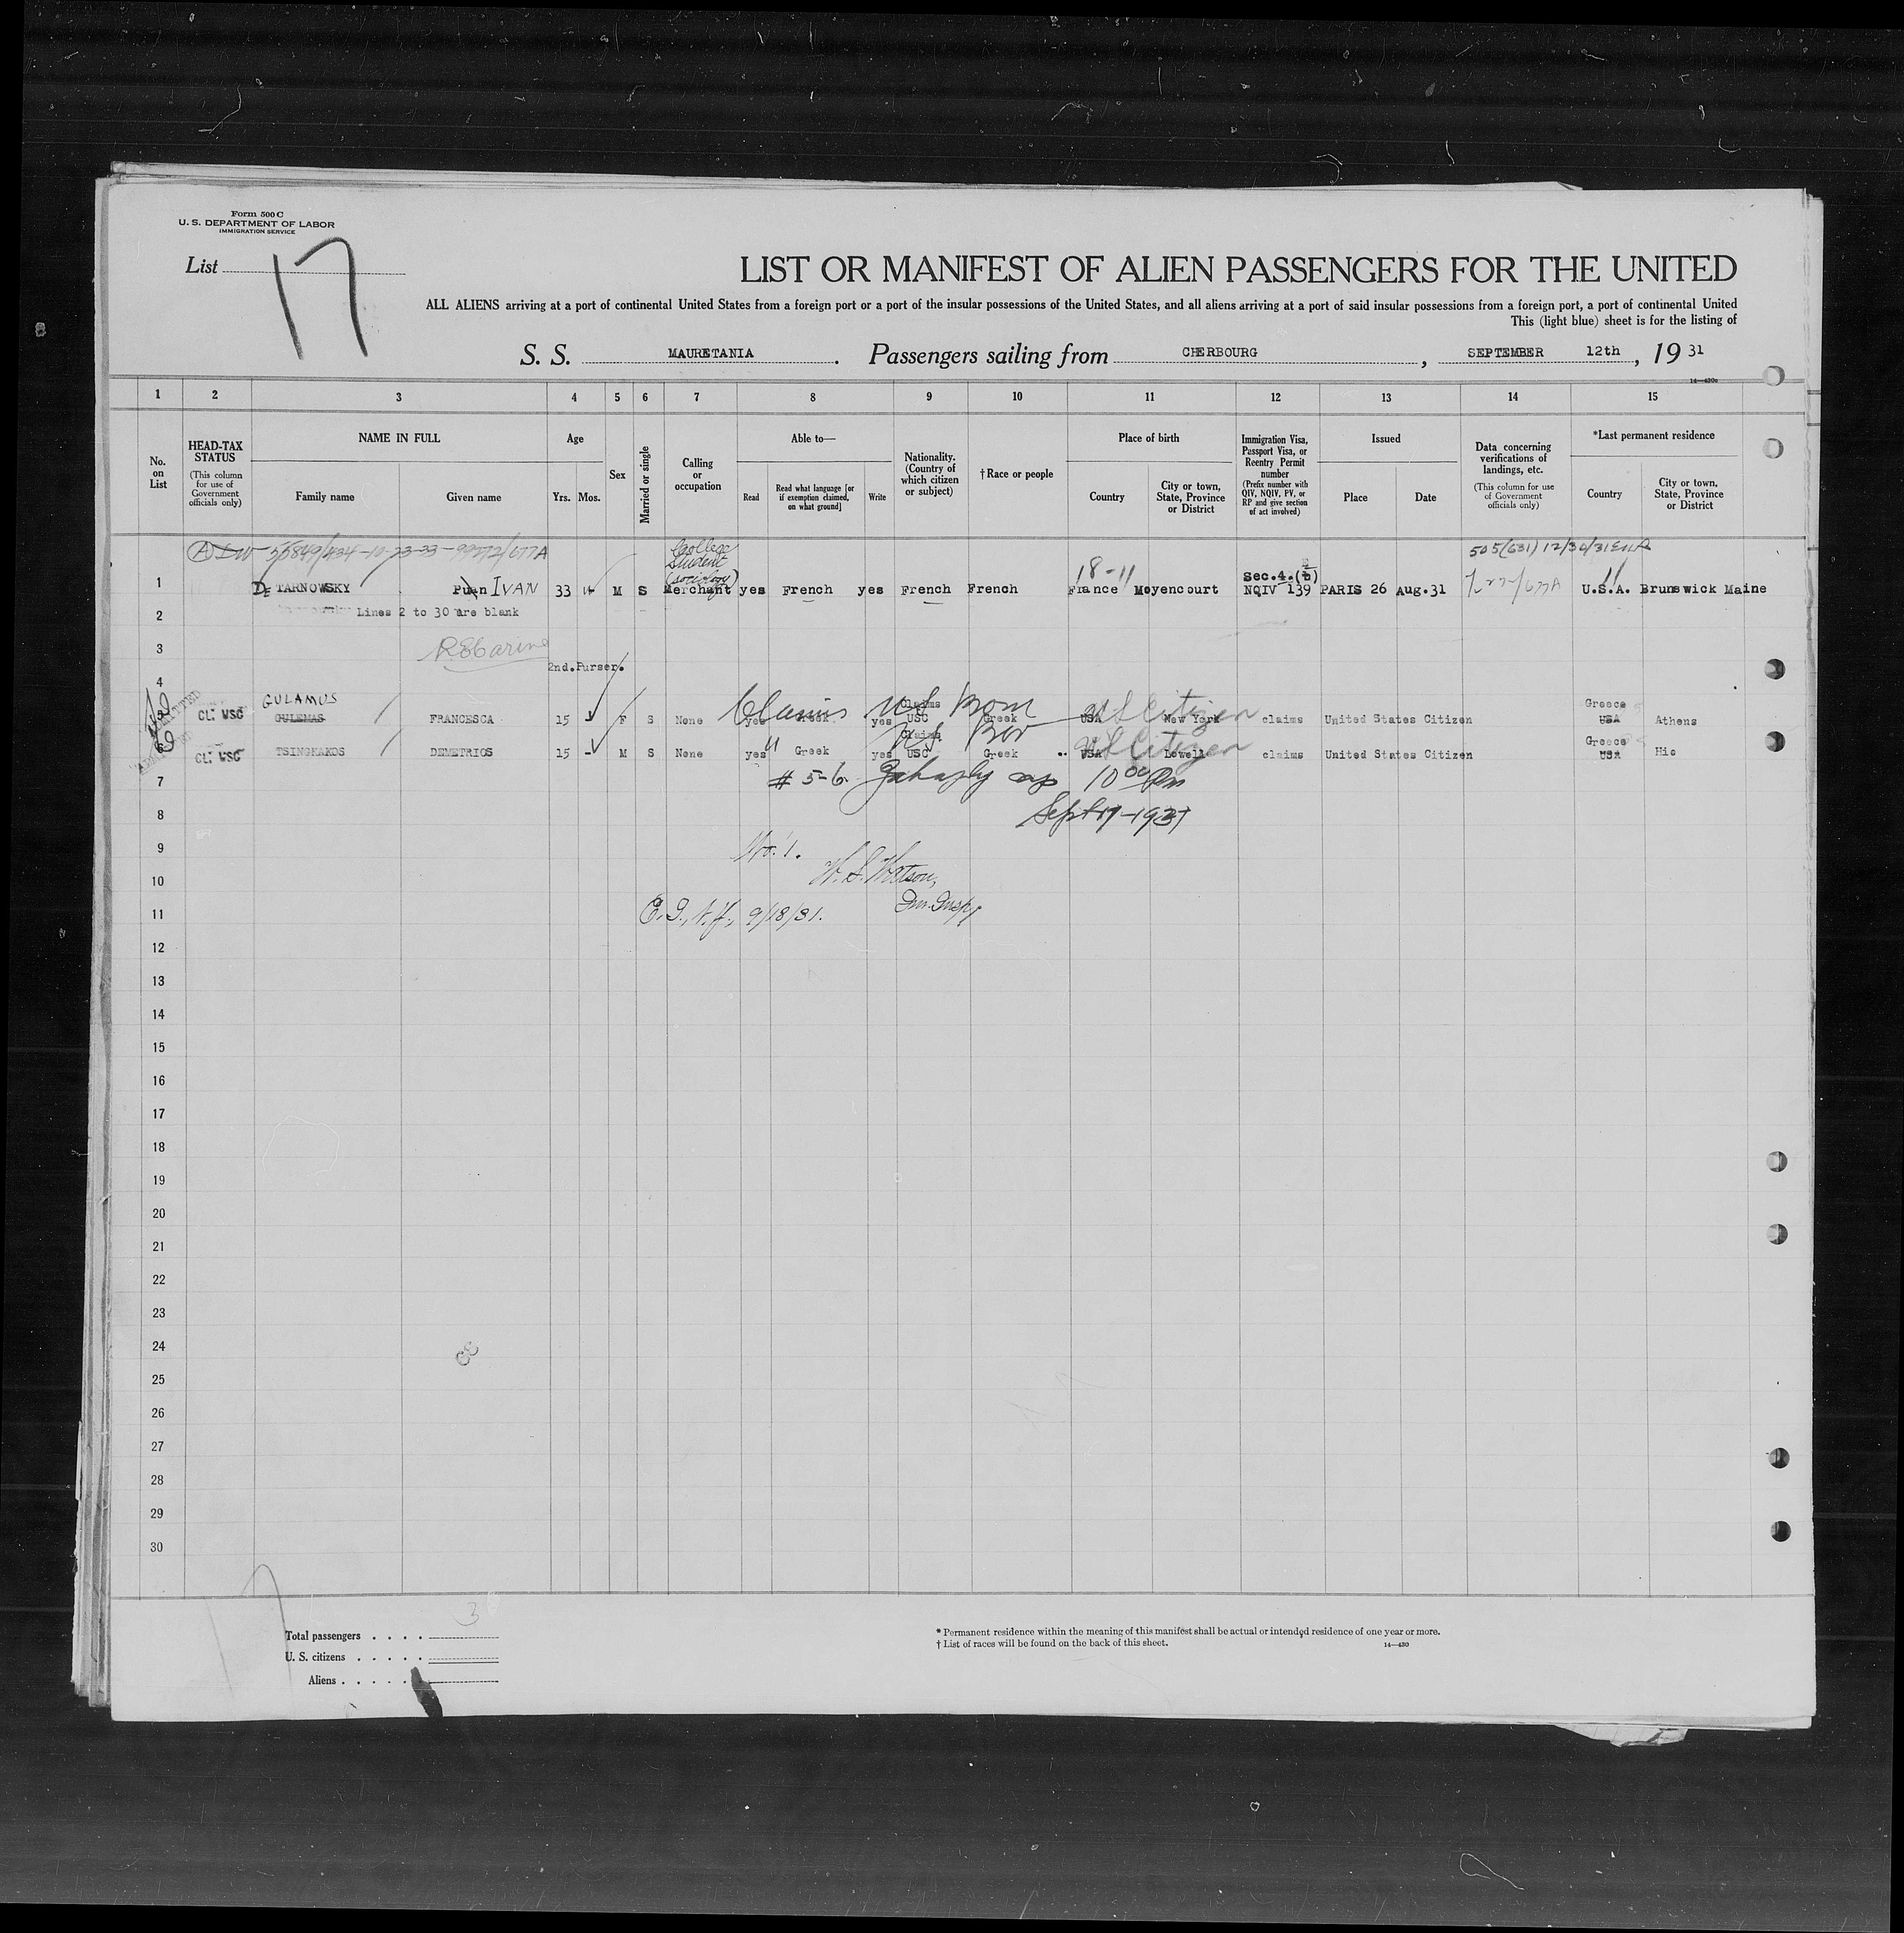 Form 500 C
U. S. DEPARTMENT OF LABOR
IMMIGRATION SERVICE
List 17
LIST OR MANIFEST OF ALIEN PASSENGERS FOR THE UNITED
ALL ALIENS arriving at a port of continental United States from a foreign port or a port of the insular possessions of the United States, and all aliens arriving at a port of said insular possessions from a foreign port, a port of continental United
This (light blue) sheet is for the listing of
S. S. MAURETANIA. Passengers sailing from CHERBOURG, SEPTEMBER 12th, 19 31
1 2 3 4 5 6 7 8 9 10 11 12 13 14 15
No. on List
HEAD-TAX STATUS
(This column for use of Government officials only)
NAME IN FULL
Family name
Given name
Age
Yrs. Mos.
Sex
Married or single
Calling or occupation
Able to—
Read
Read what language [or if exemption claimed, on what ground]
Write
Nationality. (Country of which citizen or subject)
†Race or people
Place of birth
Country
City or town, State, Province or District
Immigration Visa, Passport Visa, or Reentry Permit number
(Prefix number with QIV, NQIV, PV, or RP and give section of act involved)
Issued
Place
Date
Data concerning verifications of landings, etc.
(This column for use of Government officials only)
*Last permanent residence
Country
City or town, State, Province or District
College
Student
(sociology)
18-11
Sec.4.
1 De TARNOWSKY IVAN 33 M S Merchant yes French yes French French France Moyencourt NQIV 139 PARIS 26 Aug.31 U.S.A. Brunswick Maine
2 Lines 2 to 30 are blank
3
2nd.Purser.
4
GULAMUS
5 CL. USC GULEMAS FRANCESCA 15 F S None yes Greek yes Claims USC Greek USA New York claims United States Citizen Greece USA Athens
Claims US Born US Citizen
6 CL. USC TSINGRAKOS DEMETRIOS 15 - M S None yes Greek yes Claims USC Greek USA Lowell claims United States Citizen Greece USA Hio
" US Born US Citizen
7 # 5-6 10 00 Pm
8 Sept 17-1931
9 No. 1.
10 W. S. Watson,
11 E. I., N. Y., 9/18/31. Im. Insp.
12
13
14
15
16
17
18
19
20
21
22
23
24
25
26
27
28
29
30
Total passengers 3
U. S. citizens
Aliens
* Permanent residence within the meaning of this manifest shall be actual or intended residence of one year or more.
† List of races will be found on the back of this sheet. 14—430